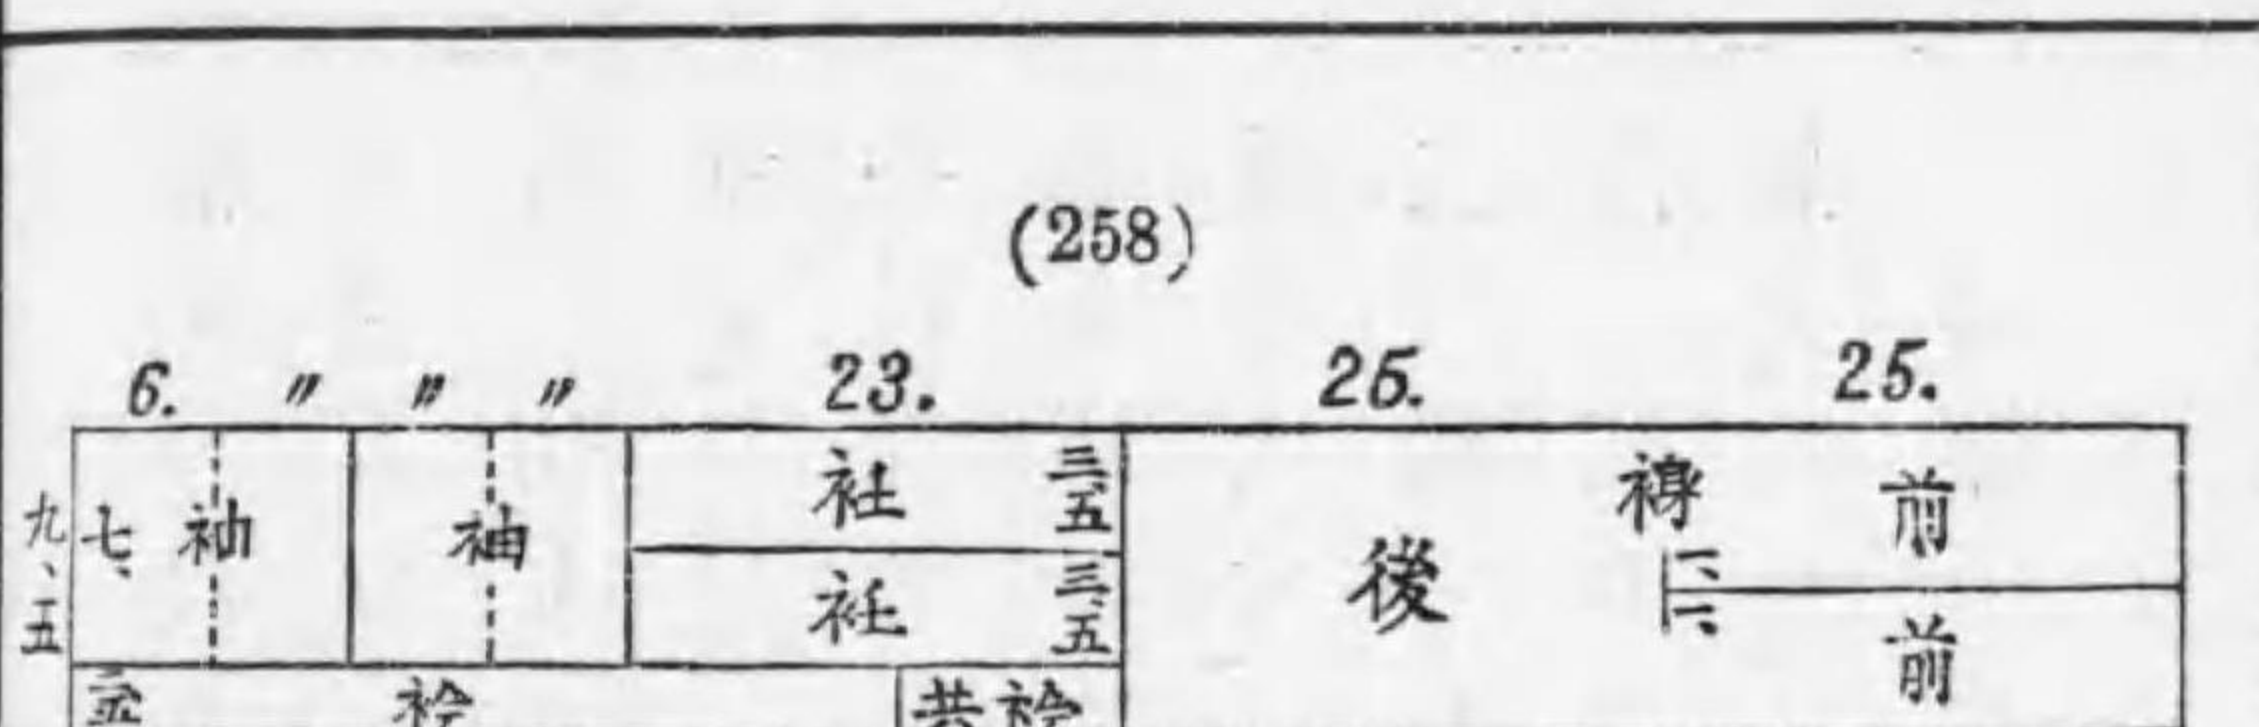 (258)
6. 〃 〃 〃 23. 25. 25.
九、五
七、
袖
袖
衽
三、五
衽
三、五
後
裑
一、
一、
前
前
衿
共衿